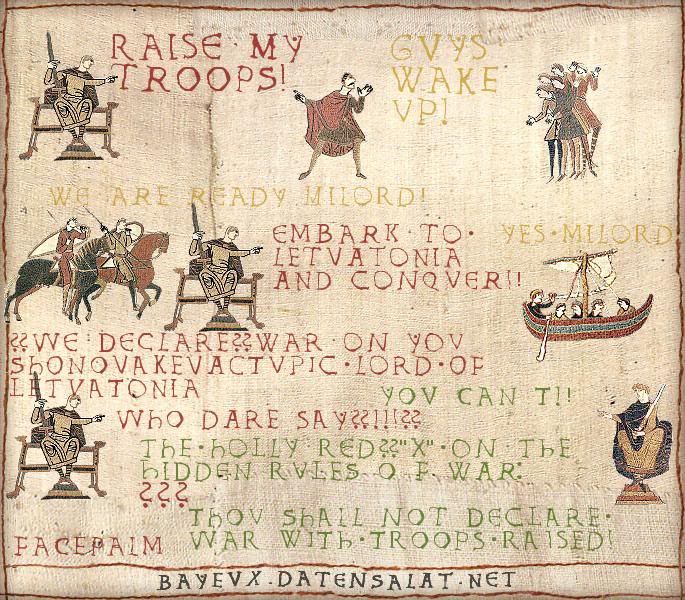 RAISE · MY
TROOPS!
GVYS
WAKE
VP!
WE ARE READY MILORD!
EMBARK · TO ·
LETVATONIA
AND CONQVER!!
YES · MILORD
??WE DECLARE??WAR ON YOV
ShONOVAKEVACTVPIC · LORD · OF
LITVATONIA
YOV CAN T!!
WhO DARE SAY??!!!??
ThE · hOLLY RED??"X" · ON ThE
hIDDEN RVLES OF WAR:
???
ThOV ShALL NOT DECLARE ·
WAR WITh · TROOPS · RAISED!
FACEPALM
BAYEVX · DATENSALAT · NET